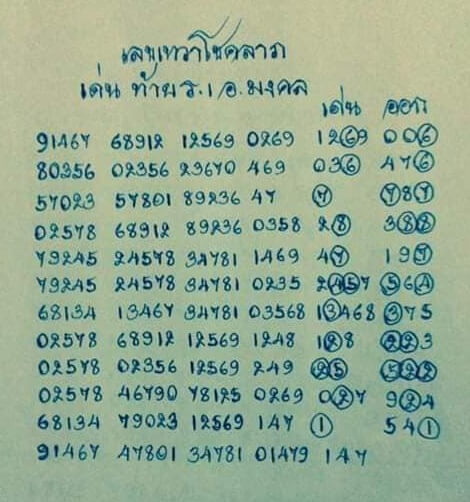 เลขเทวาโชคลาภ
เด่น ท้าย ร.1 อ.มงคล
เด่น ออก
91467 68912 12569 0269 1269 006
80356 02356 23670 469 036 476
57023 57801 89236 47 7 787
02578 68912 89236 0358 28 388
79245 24578 34781 1469 47 197
79245 24578 34781 0235 2457 564
68134 13467 34781 03568 13468 375
02578 68912 12569 1248 128 223
02578 02356 12569 249 25 522
02578 46790 78125 0269 027 924
68134 79023 12569 147 1 541
91467 47801 34781 01479 147